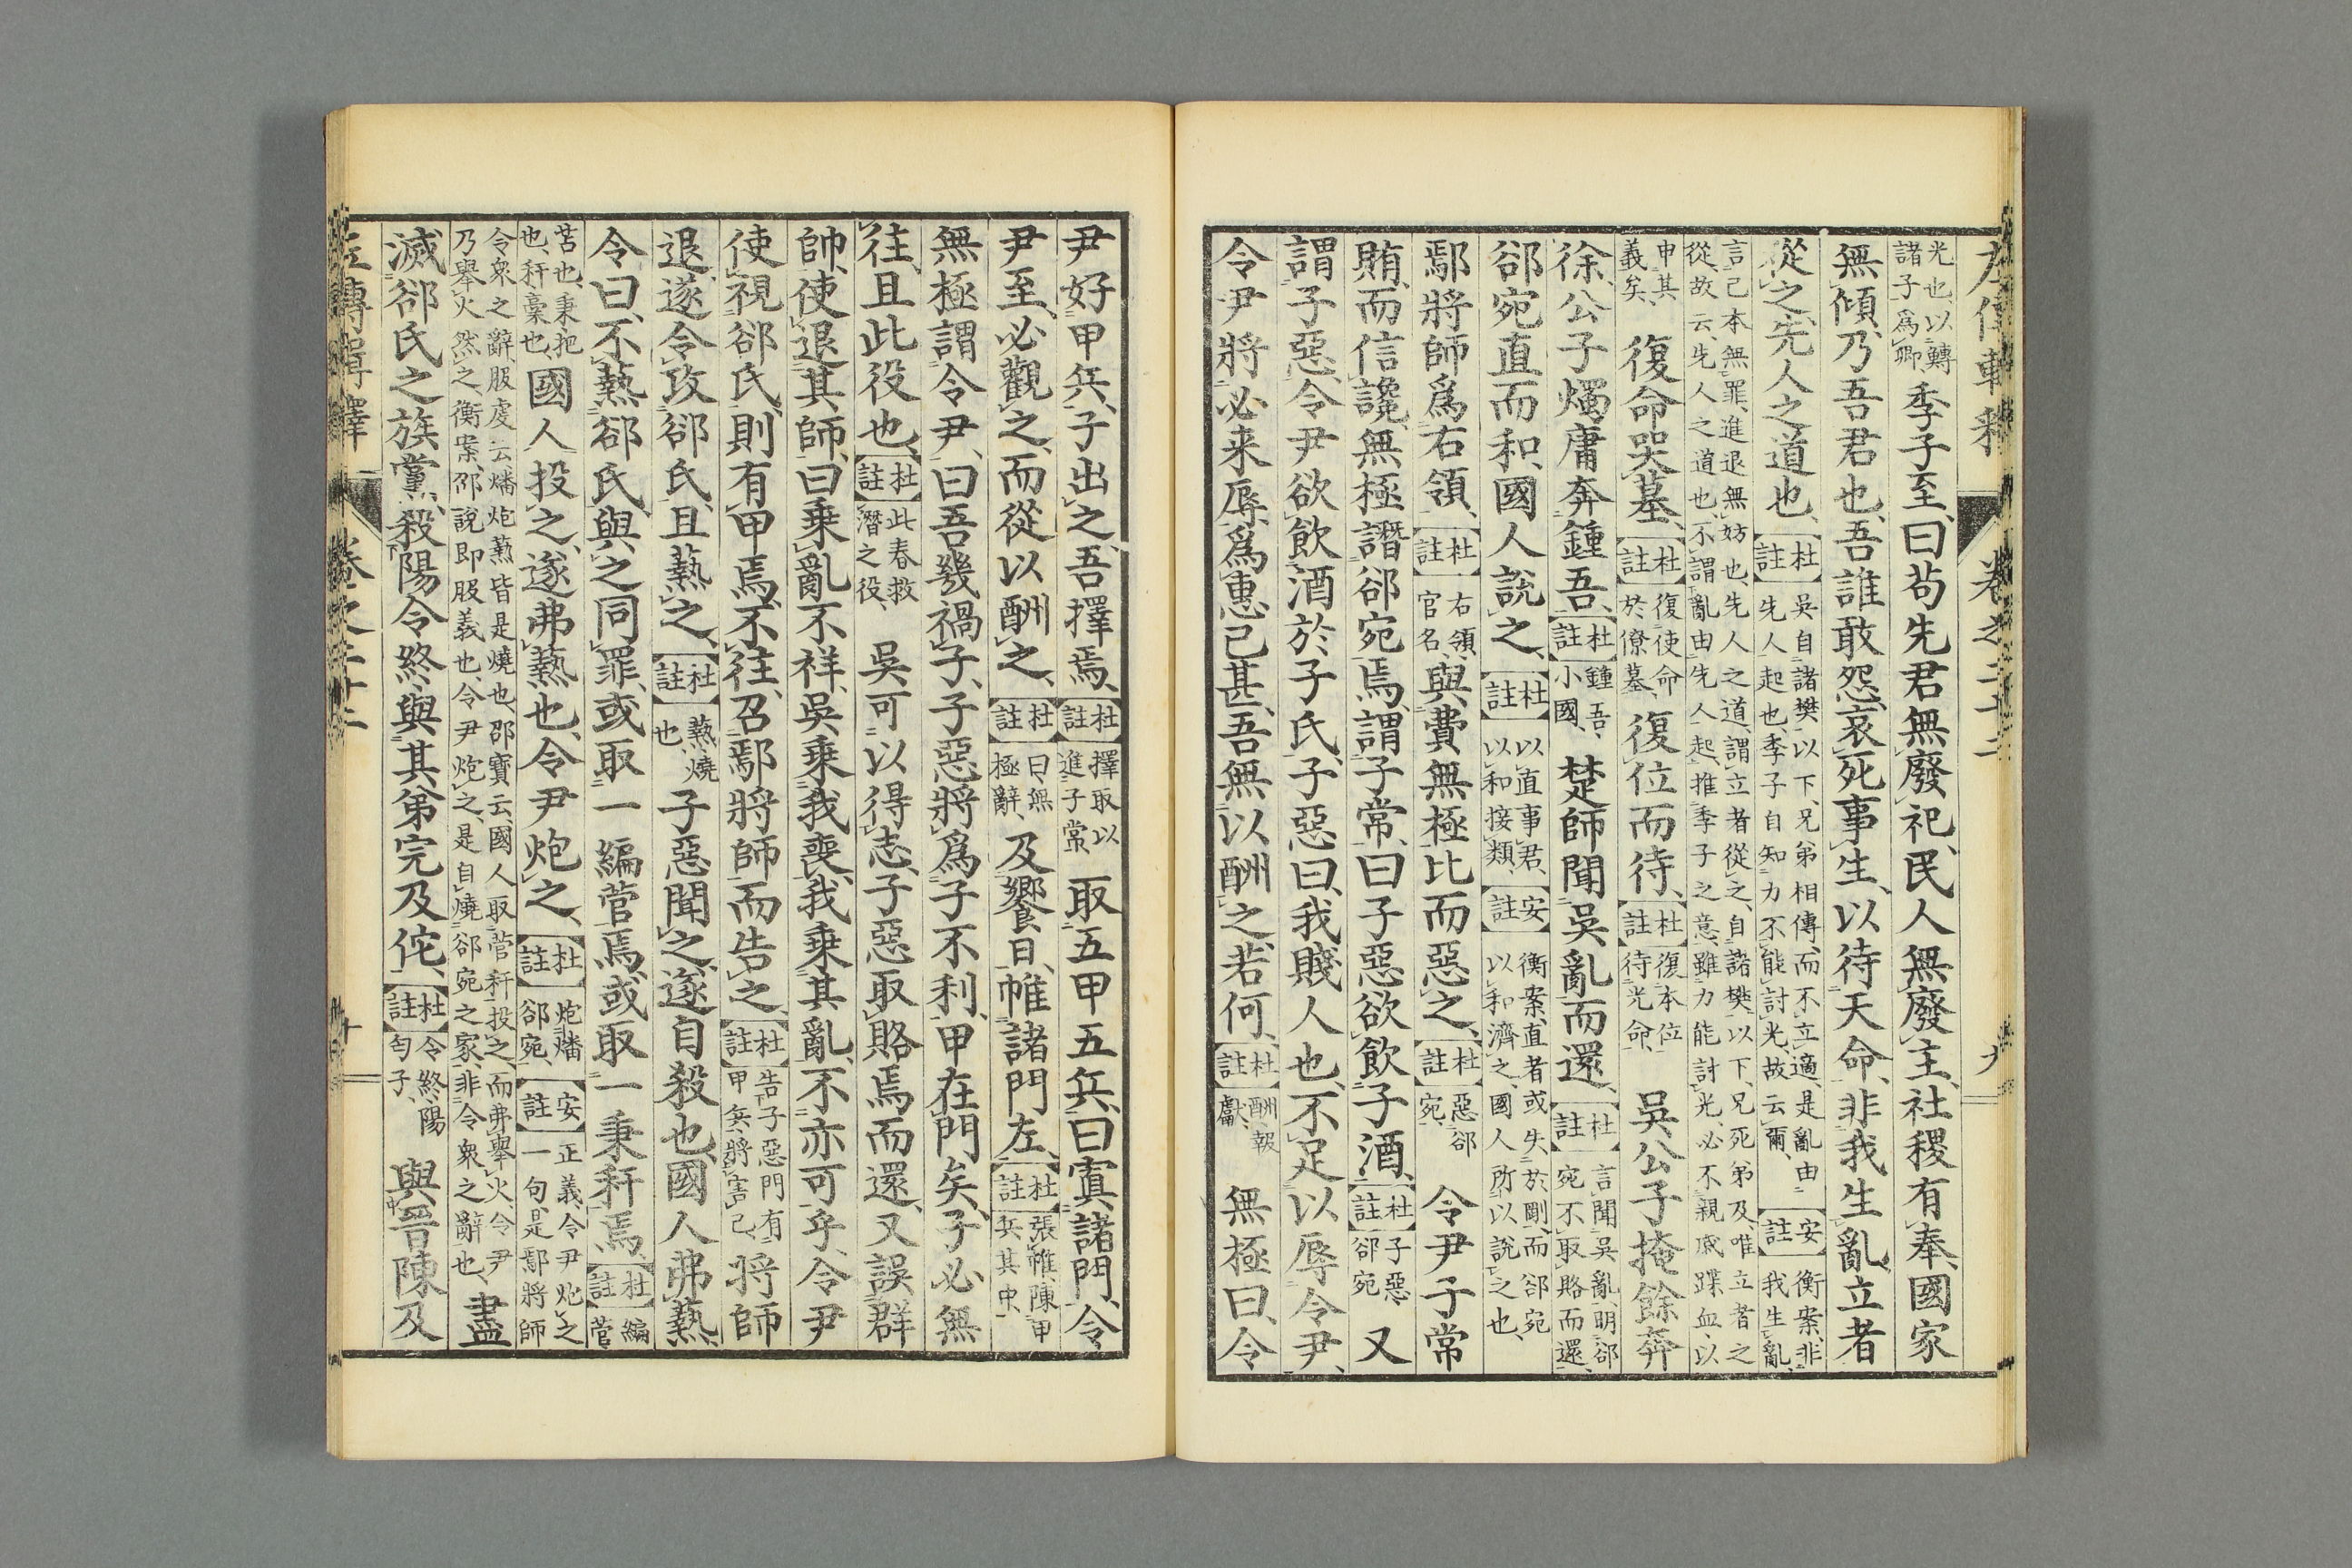 光也、以轉諸子爲卿 季子至、曰苟先君無廢祀、民人無廢主、社稷有奉、國家
無傾、乃吾君也、吾誰敢怨、哀死事生、以待天命、非我生亂、立者
從之、先人之道也、杜註 吳自諸樊以下、兄弟相傳、而不立適、是亂由先人起也、季子自知力不能討光、故云爾、安註 衡案、非我生亂、
言己本無罪、進退無妨也、先人之道、謂立者從之、自諸樊以下、兄死弟及、唯立者之從、故云先人之道也、不謂亂由先人起、推季子之意、雖力能討光、必不親戚蹀血、以
申其義矣、 復命哭墓、杜註 復使命於僚墓、 復位而待、杜註 復本位待光命、 吳公子掩餘奔
徐、公子燭庸奔鍾吾、杜註 鍾吾小國、 楚師聞吳亂而還、杜註 言聞吳亂、明郤宛不取賂而還、
郤宛直而和、國人說之、杜註 以直事君、以和接類、安註 衡案、直者或失於剛、而郤宛以和濟之、國人所以說之也、
鄢將師爲右領、杜註 右領官名、 與費無極比而惡之、杜註 惡郤宛、 令尹子常
賄而信讒、無極譖郤宛焉、謂子常、曰子惡欲飲子酒、杜註 子惡郤宛 又
謂子惡、令尹欲飲酒於子氏、子惡曰、我賤人也、不足以辱令尹、
令尹將必来辱、爲惠已甚、吾無以酬之若何、杜註 酬、報獻、 無極曰、令
左傳輯釋 卷之二十二 九
尹好甲兵、子出之、吾擇焉、杜註 擇取以進子常、 取五甲五兵、曰寘諸門、令
尹至、必觀之、而從以酬之、杜註 曰、無極辭、 及饗日、帷諸門左、杜註 張帷、陳甲兵其中、
無極謂令尹、曰吾幾禍子、子惡將爲子不利、甲在門矣、子必無
往、且此役也、杜註 此春救潛之役、 吳可以得志、子惡取賂焉而還、又誤群
帥、使退其師、曰乗亂不祥、吳乗我喪、我乗其亂、不亦可乎、令尹
使視郤氏、則有甲焉、不往、召鄢將師而告之、杜註 告子惡門有甲兵、將害己、 將師
退、遂令攻郤氏、且爇之、杜註 爇、燒也、 子惡聞之、遂自殺也、國人弗爇、
令曰、不爇郤氏、與之同罪、或取一編菅焉、或取一秉秆焉、杜註 編菅
苫也、秉、把也、秆、稾也、 國人投之、遂弗爇也、令尹炮之、杜註 炮燔郤宛、安註 正義、令尹炮之一句、是鄢將師
令衆之辭、服虔云燔炮爇皆是燒也、邵寶云、國人取菅秆投之、而弗舉火、令尹乃舉火然之、衡案、邵說即服義也、令尹炮之、是自燒郤宛之家、非令衆之辭也、 盡
滅郤氏之族黨、殺陽令終、與其弟完及佗、杜註 令終、陽匄子、 與晋陳及
左傳輯釋 卷之二十二 十